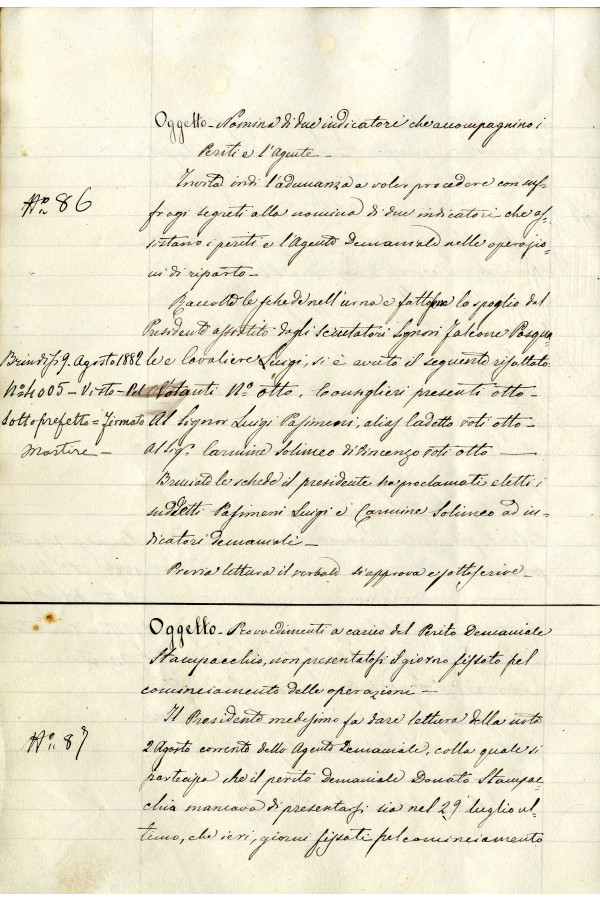 Oggetto - Nomina di due indicatori che accompagnino i
Periti e l'Agente -
N.o 86
Invita indi l'adunanza a voler procedere con suf-
fragi segreti alla nomina di due indicatori che as-
sistano i periti e l'Agente Demaniale nelle operazio=
ni di riparto -
Raccolte le schede nell'urna e fattone lo spoglio dal
Presidente assistito dagli Scrutatori Signori Falcone Pasqua
le e Cavaliere Luigi, si è avuto il seguente risultato
Votanti N.o otto, Consiglieri presenti otto -
Al Signor Luigi Pasimeni, alias Cadetto voti otto -
Al Sig.r Carmine Solimeo di Vincenzo voti otto -
Bruciate le schede il presidente ha proclamati eletti i
suddetti Pasimeni Luigi e Carmine Solimeo ad in-
dicatori demaniali -
Previa lettura il verbale si approva e sottoscrive -
Brindisi 9. Agosto 1882
N.o 4005 - Visto - Pel
Sottoprefetto = Firmato
Martire -
Oggetto - Provvedimenti a carico del Perito Demaniale
Stampacchio, non presentatosi il giorno fissato pel
cominciamento delle operazioni -
N.o 87
Il Presidente medesimo fa dare lettura della nota
2 Agosto corrente dello Agente Demaniale, colla quale si
participa che il perito demaniale Donato Stampac-
chia mancava di presentarsi sia nel 29 luglio ul-
timo, che ieri, giorni fissati pel cominciamento